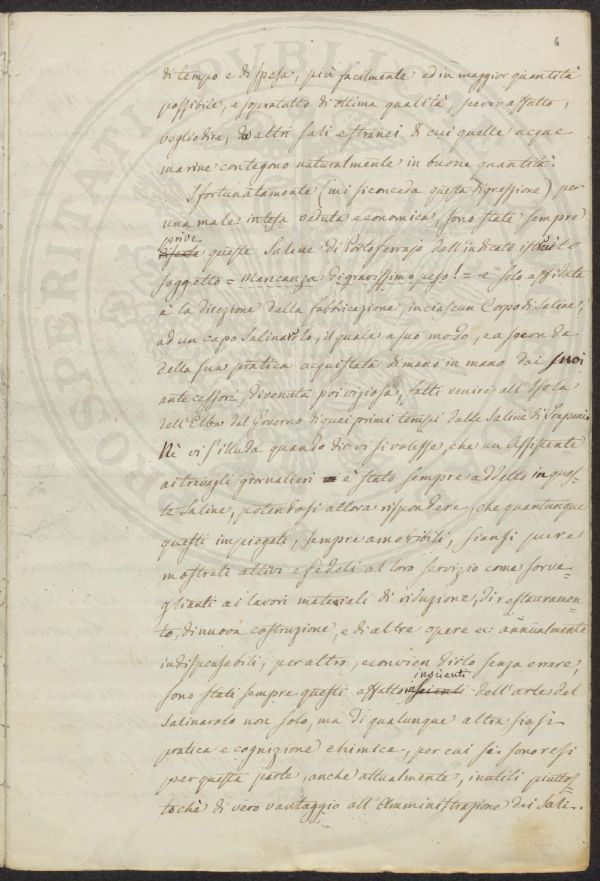 4
di tempo e di spesa, più facilmente ed in maggior quantità
possibile, e sopratutto di ottima qualità, scevra affatto,
voglio dire, di altri sali estranei di cui quelle acque
marine contegono naturalmente in buona quantità.
Sfortunatamente (mi si conceda questa digressione) per
una male intesa veduta economica, sono state sempre
prive
queste Saline di Portoferrajo dell'indicato
soggetto = Mancanza di gravissimo peso! = e solo affidata
è la direzione della fabbricazione, in ciascun Corpo di Saline,
ad un capo Salinarolo, il quale a suo modo, e a seconda
della sua pratica acquistata di mano in mano dai suoi
antecessori, divenuta poi viziosa, fatti venire all'Isola
dell'Elba dal Governo di quei primi tempi dalle Saline di Trapani.
Nè vi s'illuda quando dir vi si volesse, che un Assistente
ai travagli giornalieri è stato sempre addetto in que-
ste Saline, potendosi allora rispondere, che quantunque
questi impiegati, sempre amovibili, siansi pure
mostrati attivi e fedeli al loro servizio come sorve-
glianti ai lavori materiali di riduzione, di restauramen-
to, di nuova costruzione, e di altre opere ec: annualmente
indispensabili, per altro, e convien dirlo senza errare,
inscienti
sono stati sempre questi affatto dell'arte del
Salinarolo non solo, ma di qualunque altra siasi
pratica e cognizione chimica, per cui si sono resi
per questa parte, anche attualmente, inutili piuttos-
tochè di vero vantaggio all'Amministrazione dei Sali.
PROSPERITATI PUBLICAE